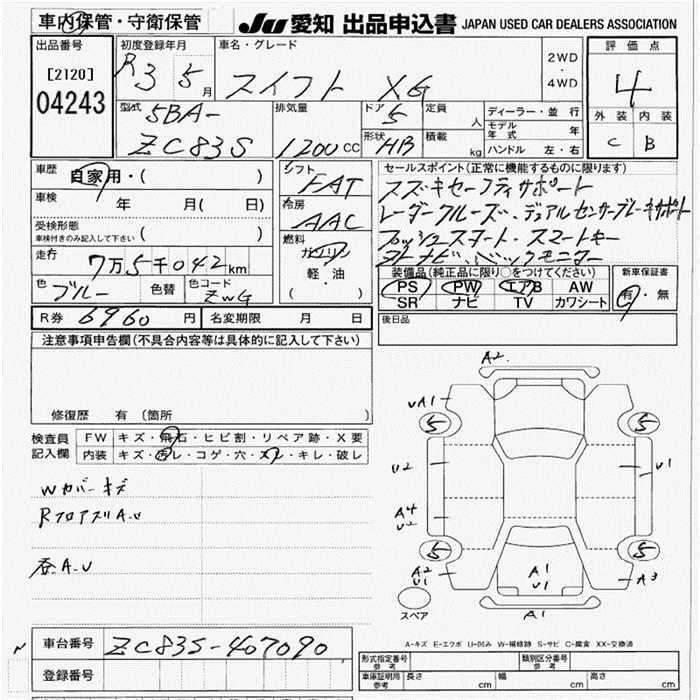 車内保管・守衛保管 JU 愛知 出品申込書 JAPAN USED CAR DEALERS ASSOCIATION
出品番号 初度登録年月 車名・グレード 評価点
[2120] R3 5 月 スイフト XG 2WD ・ 4WD 4
04243
型式 5BA- 排気量 ドア 5 定員 人 ディーラー・並 行 外装 内装
モデル年式 年
ZC83S 1200 CC 形状 HB 積載 kg ハンドル 左・右 C B
車歴 自家用・( ) シフト FAT セールスポイント(正常に機能するものに限ります)
車検 年 月( 日) 冷房 AAC スズキセーフティサポート
レーダークルーズ、デュアルセンサーブレーキサポート
受検形態 車検付きのみ記入して下さい ( ) 燃料 ガソリン プッシュスタート・スマートキー
走行 7万5千042km 軽・油 ナビ、バックモニター
色 ブルー 色替 色コード ZWG ( ・ ) 装備品(純正品に限り○をつけてください) 新車保証書
PS PW エアB AW 有・無
SR ナビ TV カワシート
R券 6960 円 名変期限 月 日 後日品
注意事項申告欄(不具合内容等は具体的に記入して下さい)
修復歴 有 〔箇所 〕
検査員記入欄 FW キズ・飛石・ヒビ割・リペア跡・X要
内装 キズ・汚レ・コゲ・穴・スレ・キレ・破レ
Wカバーキズ
RフロアズリA.U
呑A.U
A2
UA1
5 5
U2 U1
A4
U2
5 5
A2
U1
A1
U1
A3
スペア
A1
A-キズ E-エクボ U-凹み W-補修跡 S-サビ C-腐食 XX-交換済
車台番号 ZC83S-407090
登録番号
形式指定番号 参考 類別区分番号 参考
車庫証明用 参考 長さ cm 幅 cm 高さ cm